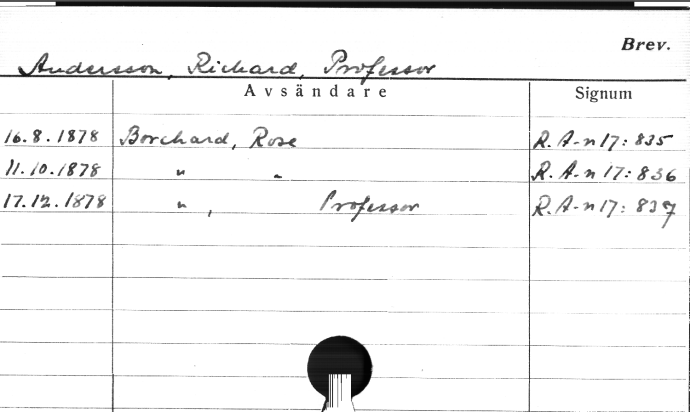 Brev.
Andersson, Richard, Professor
Avsändare Signum
16.8.1878 Borchard, Rose R. A-n 17: 835
11.10.1878 " " R. A-n 17: 836
17.12.1878 " , Professor R. A-n 17: 837